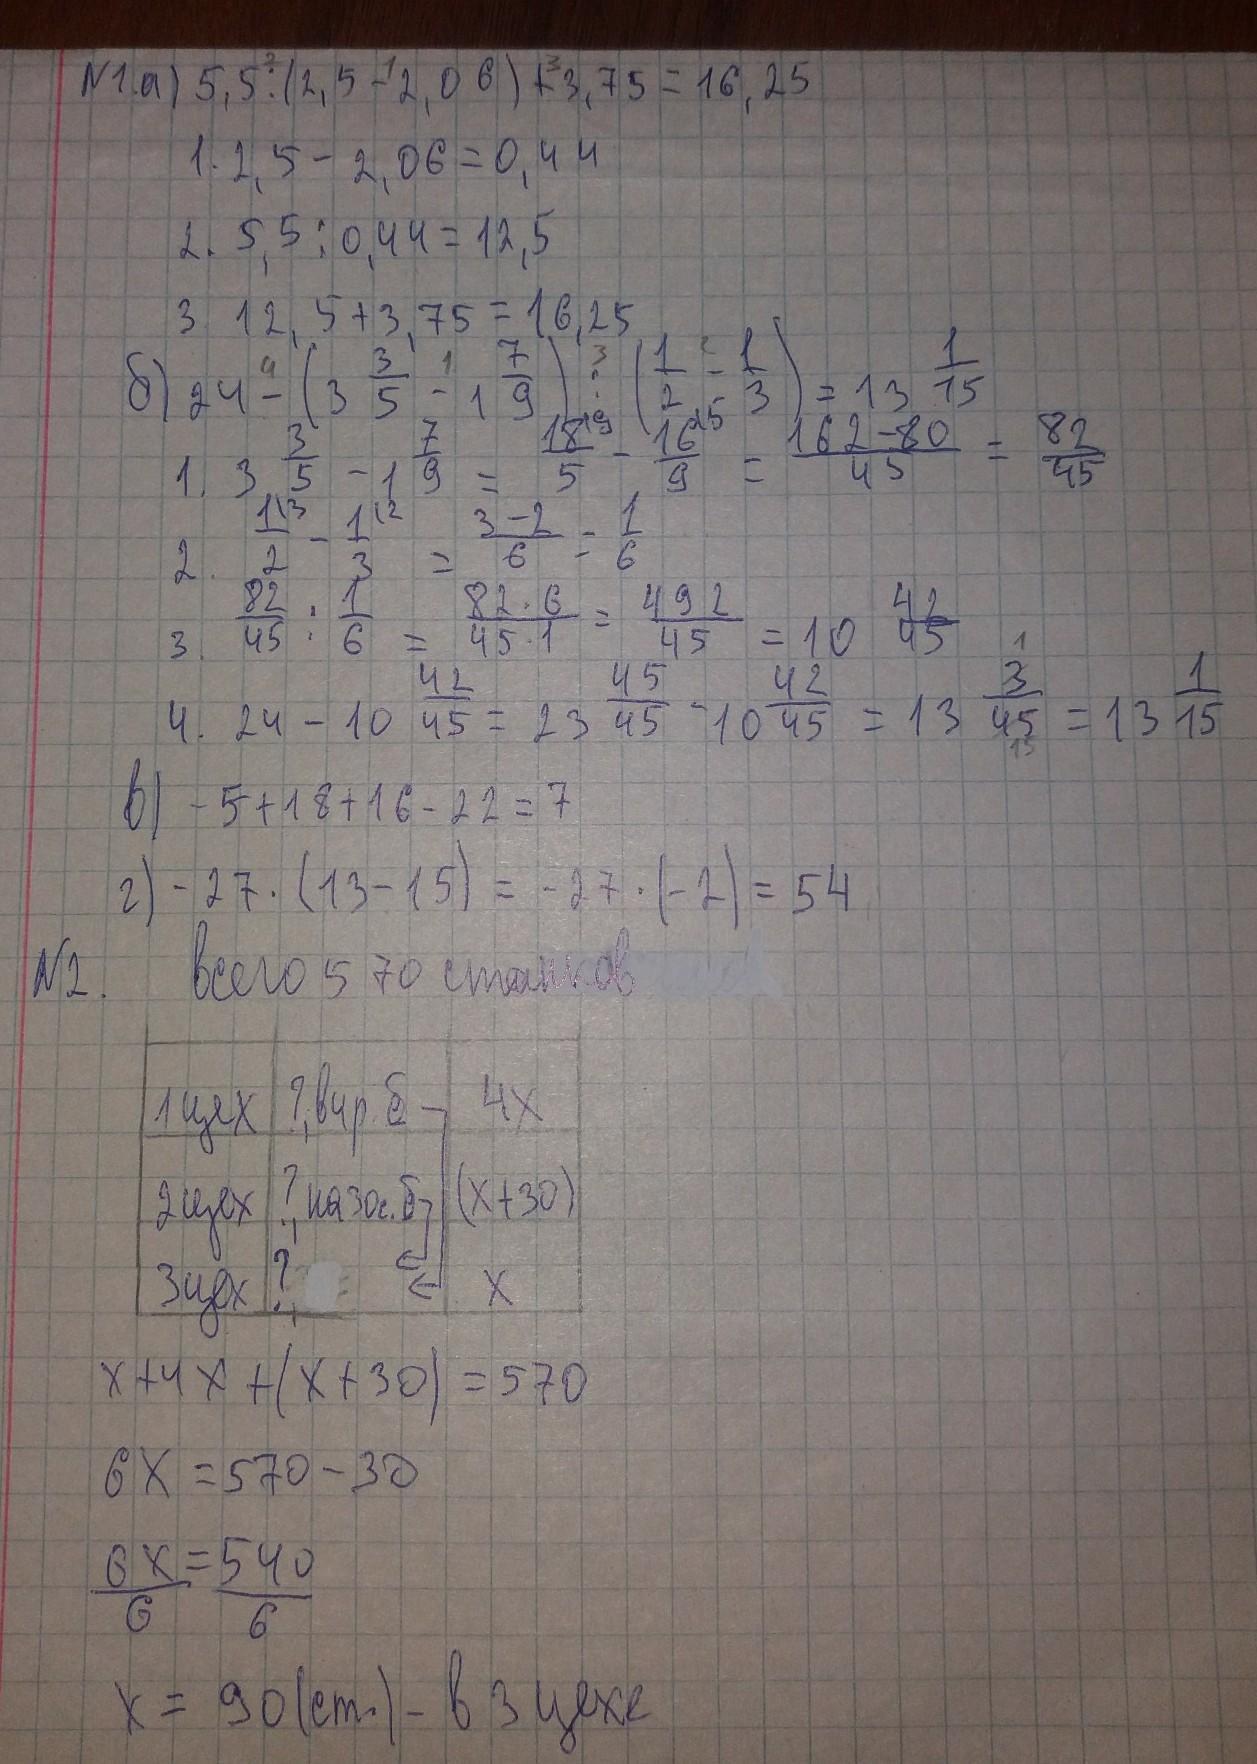 N1.а) 5,5:(2,5-2,06)+3,75=16,25
1. 2,5-2,06=0,44
2. 5,5:0,44=12,5
3. 12,5+3,75=16,25
б) 24-(3 3/5 - 1 7/9):(1/2 - 1/3)=13 1/15
1. 3 3/5 - 1 7/9 = 18/5 - 16/9 = 162-80/45 = 82/45
2. 1/2 - 1/3 = 3-2/6 = 1/6
3. 82/45 : 1/6 = 82·6/45·1 = 492/45 = 10 42/45
4. 24 - 10 42/45 = 23 45/45 - 10 42/45 = 13 3/45 = 13 1/15
в) -5+18+16-22=7
г) -27·(13-15)=-27·(-2)=54
N2. всего 570 станков
1цех ?, в 4р. б 4x
2цех ?, на 30с. б (x+30)
3цех ?, x
x+4x+(x+30)=570
6x=570-30
6x/6=540/6
x=90(ст.)-в 3 цехе